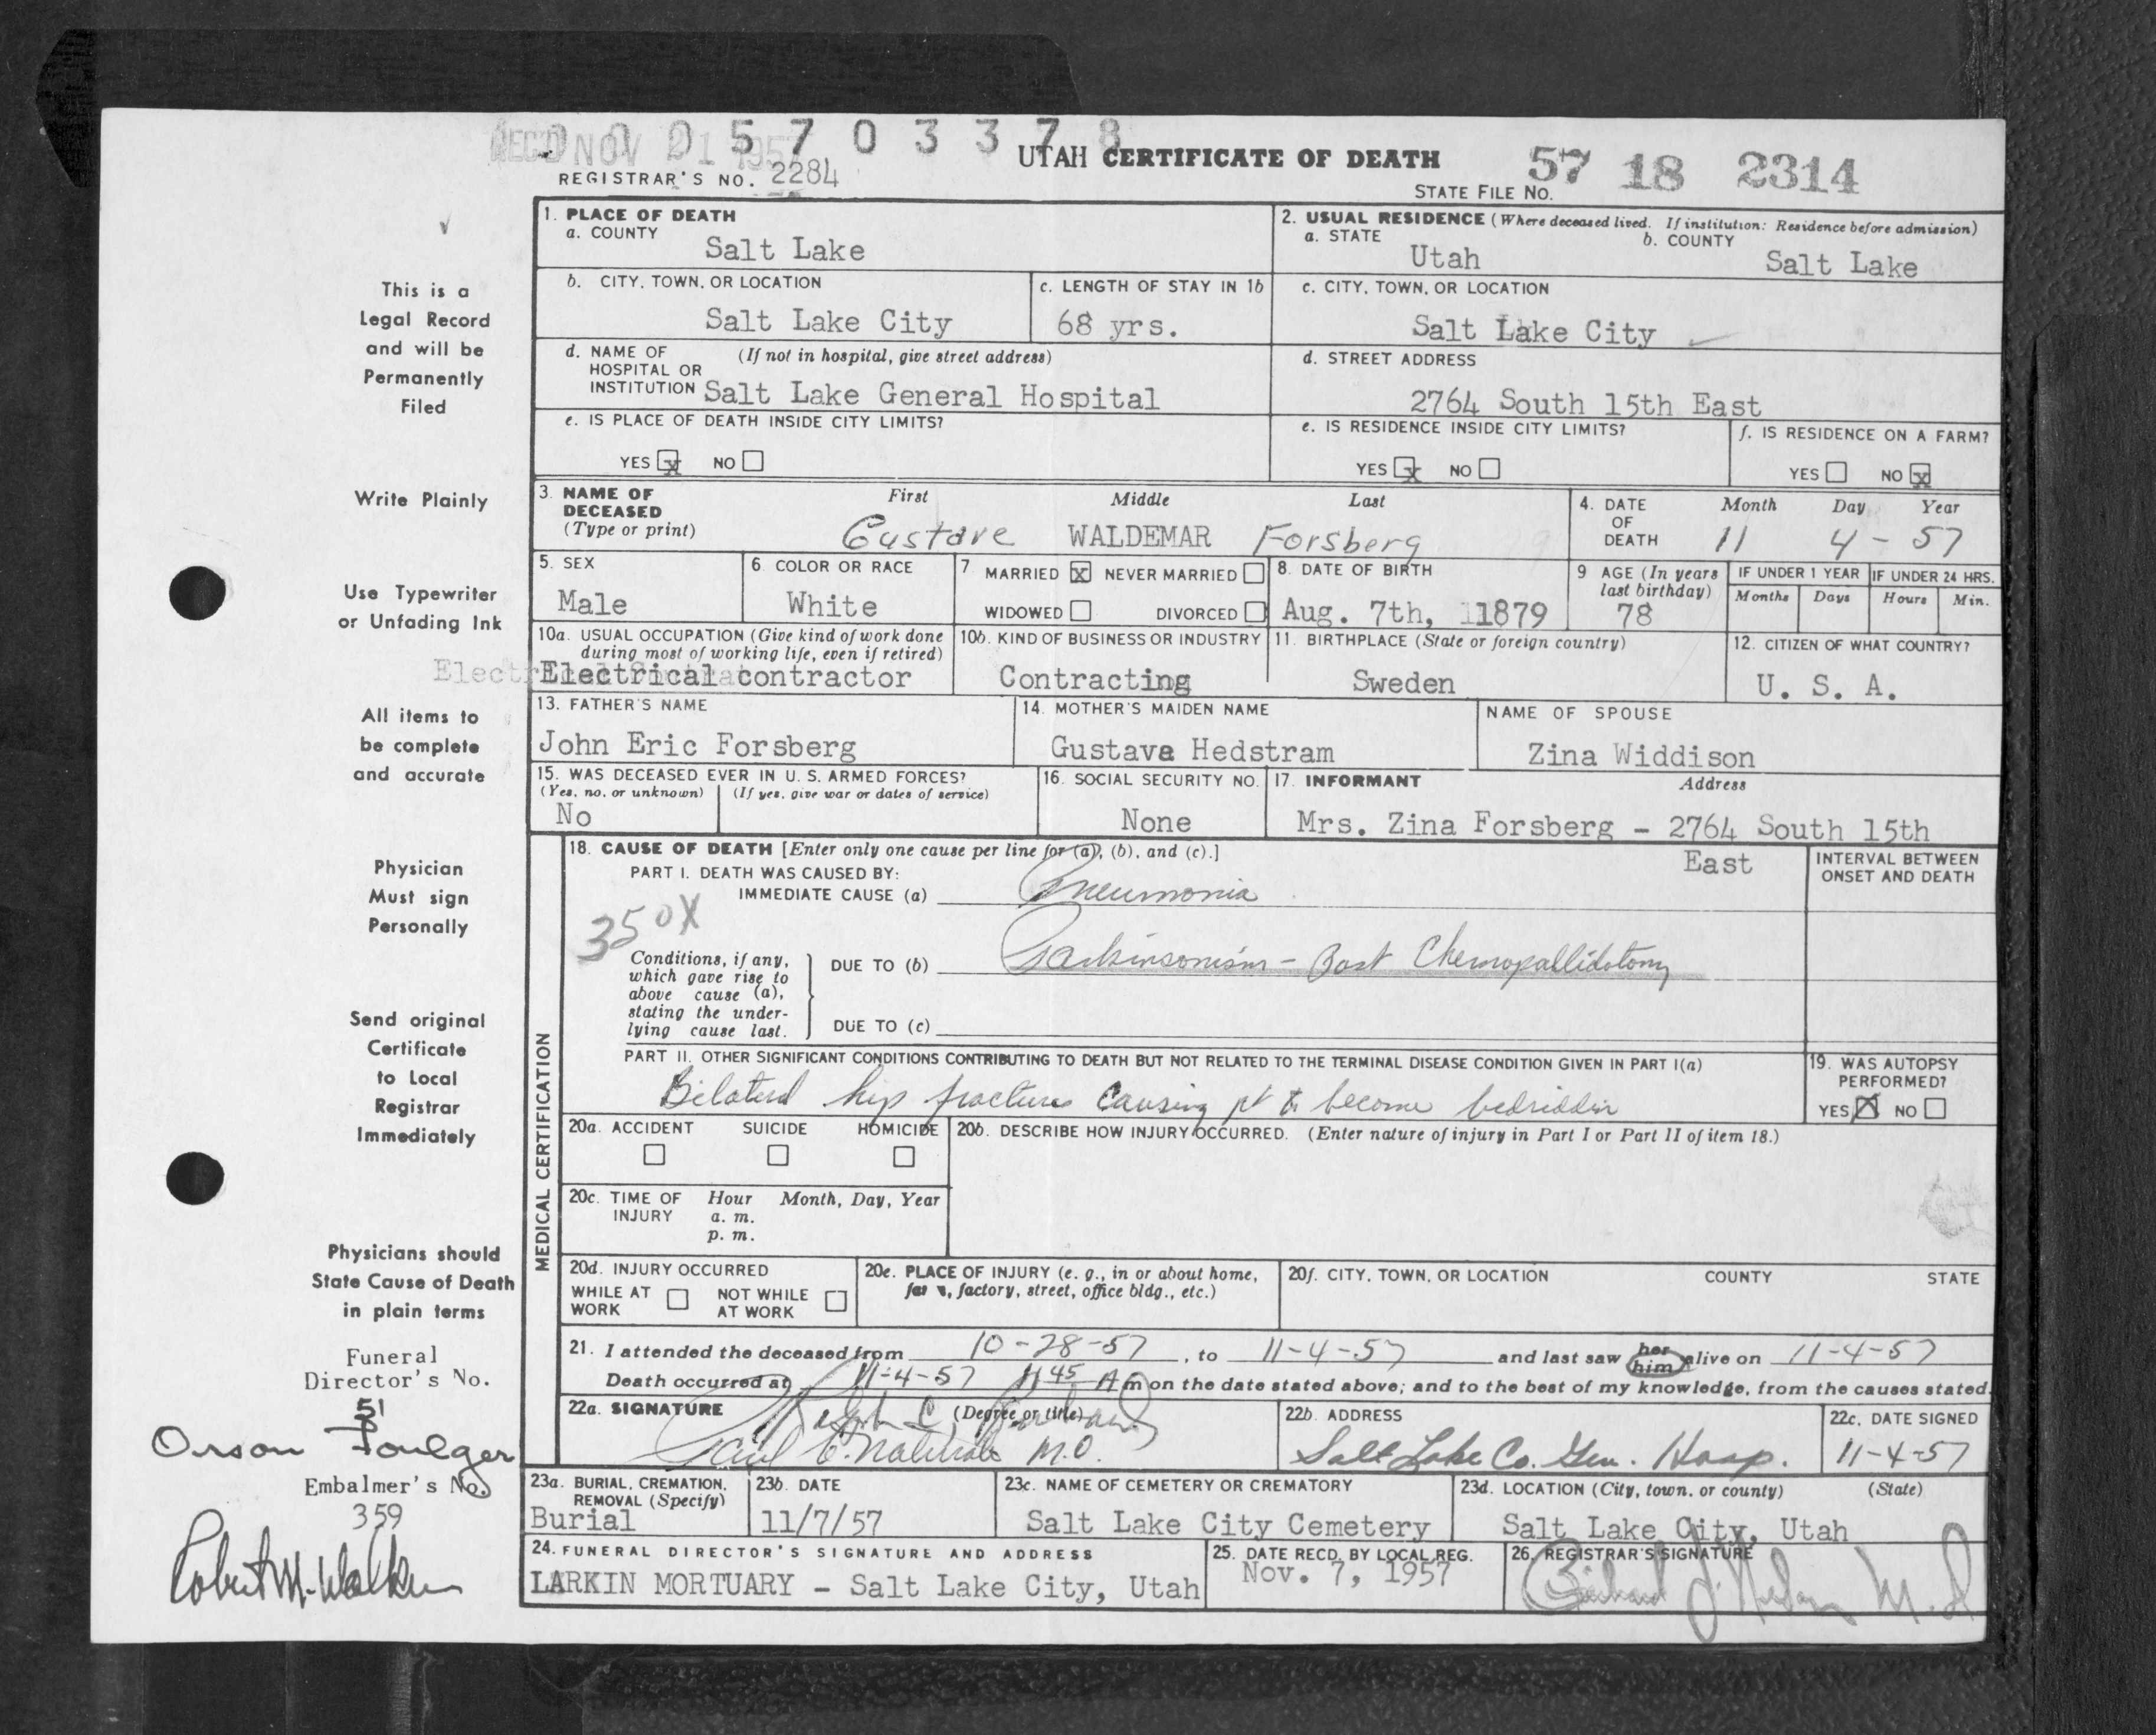 REC'D NOV 21 1957
0 0 5 7 0 3 3 7 8
UTAH CERTIFICATE OF DEATH
REGISTRAR'S NO. 2284
STATE FILE NO. 57 18 2314
This is a
Legal Record
and will be
Permanently
Filed
Write Plainly
Use Typewriter
or Unfading Ink
All items to
be complete
and accurate
Physician
Must sign
Personally
Send original
Certificate
to Local
Registrar
Immediately
Physicians should
State Cause of Death
in plain terms
Funeral
Director's No.
51
Orson Foulger
Embalmer's No.
359
Robert M. Walker
1. PLACE OF DEATH
a. COUNTY
Salt Lake
2. USUAL RESIDENCE (Where deceased lived. If institution: Residence before admission)
a. STATE
Utah
b. COUNTY
Salt Lake
b. CITY, TOWN, OR LOCATION
Salt Lake City
c. LENGTH OF STAY IN 1b
68 yrs.
c. CITY, TOWN, OR LOCATION
Salt Lake City
d. NAME OF HOSPITAL OR INSTITUTION
(If not in hospital, give street address)
Salt Lake General Hospital
d. STREET ADDRESS
2764 South 15th East
e. IS PLACE OF DEATH INSIDE CITY LIMITS?
YES x NO
e. IS RESIDENCE INSIDE CITY LIMITS?
YES x NO
f. IS RESIDENCE ON A FARM?
YES NO x
3. NAME OF DECEASED
(Type or print)
First Middle Last
Gustave WALDEMAR Forsberg
4. DATE OF DEATH
Month Day Year
11 4 - 57
5. SEX
Male
6. COLOR OR RACE
White
7 MARRIED x NEVER MARRIED
WIDOWED DIVORCED
8. DATE OF BIRTH
Aug. 7th, 1879
9 AGE (In years last birthday)
78
IF UNDER 1 YEAR
Months Days
IF UNDER 24 HRS.
Hours Min.
10a. USUAL OCCUPATION (Give kind of work done
during most of working life, even if retired)
Electrical contractor
10b. KIND OF BUSINESS OR INDUSTRY
Contracting
11. BIRTHPLACE (State or foreign country)
Sweden
12. CITIZEN OF WHAT COUNTRY?
U. S. A.
13. FATHER'S NAME
John Eric Forsberg
14. MOTHER'S MAIDEN NAME
Gustava Hedstram
NAME OF SPOUSE
Zina Widdison
15. WAS DECEASED EVER IN U. S. ARMED FORCES?
(Yes, no, or unknown) (If yes, give war or dates of service)
No
16. SOCIAL SECURITY NO.
None
17. INFORMANT Address
Mrs. Zina Forsberg - 2764 South 15th
East
MEDICAL CERTIFICATION
18. CAUSE OF DEATH [Enter only one cause per line for (a), (b), and (c).]
PART I. DEATH WAS CAUSED BY:
IMMEDIATE CAUSE (a) Pneumonia
INTERVAL BETWEEN
ONSET AND DEATH
350X
Conditions, if any,
which gave rise to
above cause (a),
stating the under-
lying cause last.
DUE TO (b) Parkinsonism - Post Chemopallidotomy
DUE TO (c)
PART II. OTHER SIGNIFICANT CONDITIONS CONTRIBUTING TO DEATH BUT NOT RELATED TO THE TERMINAL DISEASE CONDITION GIVEN IN PART I(a)
Bilateral hip fracture causing pt to become bedridden
19. WAS AUTOPSY
PERFORMED?
YES X NO
20a. ACCIDENT SUICIDE HOMICIDE
20b. DESCRIBE HOW INJURY OCCURRED. (Enter nature of injury in Part I or Part II of item 18.)
20c. TIME OF INJURY
Hour Month, Day, Year
a. m.
p. m.
20d. INJURY OCCURRED
WHILE AT WORK NOT WHILE AT WORK
20e. PLACE OF INJURY (e. g., in or about home,
farm, factory, street, office bldg., etc.)
20f. CITY, TOWN, OR LOCATION COUNTY STATE
21. I attended the deceased from 10-28-57, to 11-4-57 and last saw her him alive on 11-4-57
Death occurred at 11-4-57 11 45 A m on the date stated above; and to the best of my knowledge, from the causes stated.
22a. SIGNATURE (Degree or title)
Ralph C.
M.D.
22b. ADDRESS
Salt Lake Co. Gen. Hosp.
22c. DATE SIGNED
11-4-57
23a. BURIAL, CREMATION,
REMOVAL (Specify)
Burial
23b. DATE
11/7/57
23c. NAME OF CEMETERY OR CREMATORY
Salt Lake City Cemetery
23d. LOCATION (City, town, or county) (State)
Salt Lake City, Utah
24. FUNERAL DIRECTOR'S SIGNATURE AND ADDRESS
LARKIN MORTUARY - Salt Lake City, Utah
25. DATE RECD. BY LOCAL REG.
Nov. 7, 1957
26. REGISTRAR'S SIGNATURE